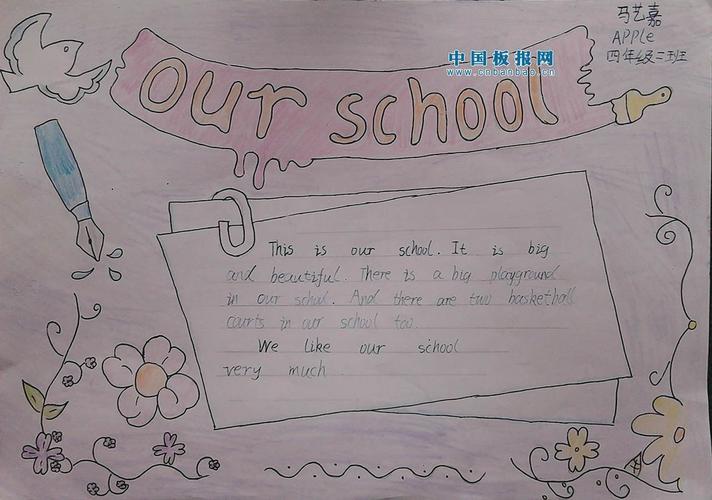 马艺嘉
APPle
四年级二班
中国板报网
www.cnbanbao.cn
our school
This is our school. It is big
and beautiful. There is a big playground
in our school. And there are two basketball
courts in our school too.
We like our school
very much